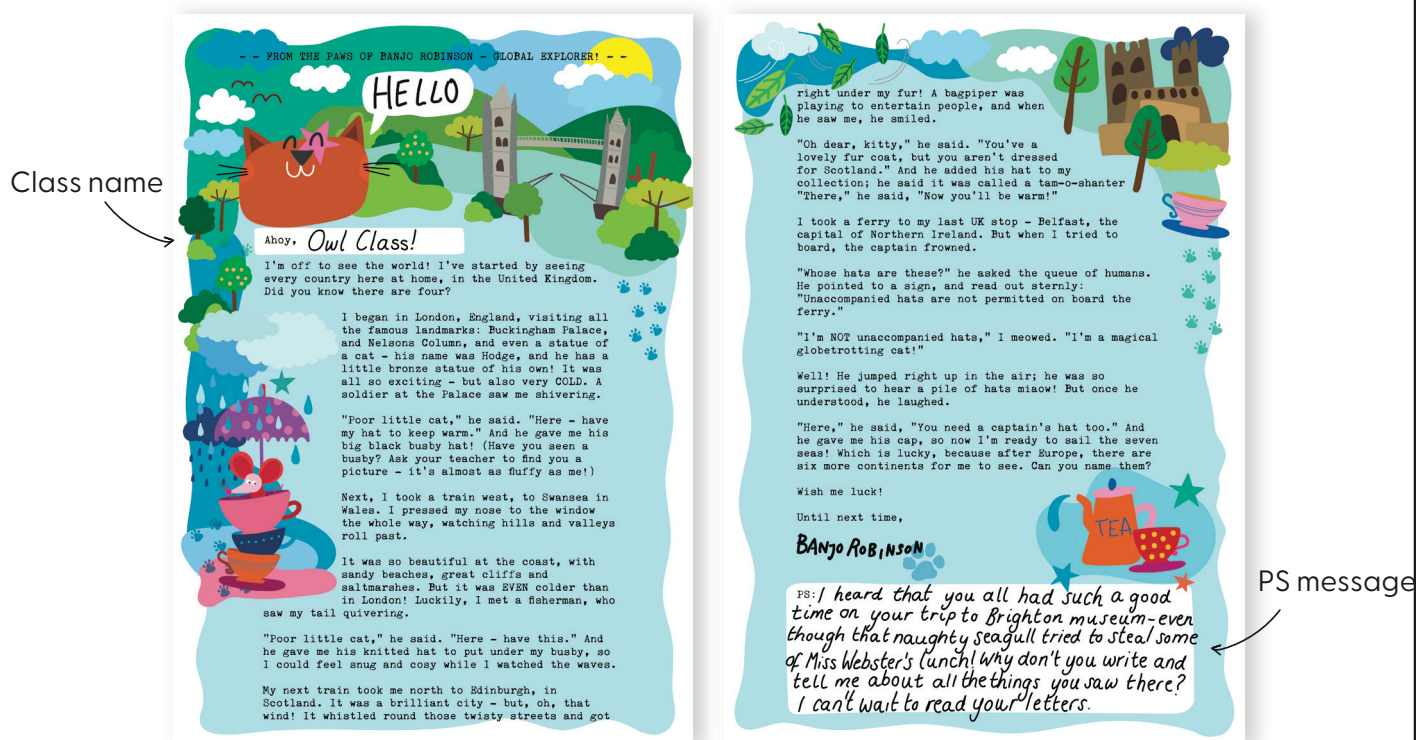 - - FROM THE PAWS OF BANJO ROBINSON - GLOBAL EXPLORER! - -
HELLO
Class name
Ahoy, Owl Class!
I'm off to see the world! I've started by seeing
every country here at home, in the United Kingdom.
Did you know there are four?
I began in London, England, visiting all
the famous landmarks: Buckingham Palace,
and Nelsons Column, and even a statue of
a cat - his name was Hodge, and he has a
little bronze statue of his own! It was
all so exciting - but also very COLD. A
soldier at the Palace saw me shivering.
"Poor little cat," he said. "Here - have
my hat to keep warm." And he gave me his
big black busby hat! (Have you seen a
busby? Ask your teacher to find you a
picture - it's almost as fluffy as me!)
Next, I took a train west, to Swansea in
Wales. I pressed my nose to the window
the whole way, watching hills and valleys
roll past.
It was so beautiful at the coast, with
sandy beaches, great cliffs and
saltmarshes. But it was EVEN colder than
in London! Luckily, I met a fisherman, who
saw my tail quivering.
"Poor little cat," he said. "Here - have this." And
he gave me his knitted hat to put under my busby, so
I could feel snug and cosy while I watched the waves.
My next train took me north to Edinburgh, in
Scotland. It was a brilliant city - but, oh, that
wind! It whistled round those twisty streets and got
right under my fur! A bagpiper was
playing to entertain people, and when
he saw me, he smiled.
"Oh dear, kitty," he said. "You've a
lovely fur coat, but you aren't dressed
for Scotland." And he added his hat to my
collection; he said it was called a tam-o-shanter
"There," he said, "Now you'll be warm!"
I took a ferry to my last UK stop - Belfast, the
capital of Northern Ireland. But when I tried to
board, the captain frowned.
"Whose hats are these?" he asked the queue of humans.
He pointed to a sign, and read out sternly:
"Unaccompanied hats are not permitted on board the
ferry."
"I'm NOT unaccompanied hats," I meowed. "I'm a magical
globetrotting cat!"
Well! He jumped right up in the air; he was so
surprised to hear a pile of hats miaow! But once he
understood, he laughed.
"Here," he said, "You need a captain's hat too." And
he gave me his cap, so now I'm ready to sail the seven
seas! Which is lucky, because after Europe, there are
six more continents for me to see. Can you name them?
Wish me luck!
Until next time,
BANJO ROBINSON
TEA
PS: I heard that you all had such a good
time on your trip to Brighton museum-even
though that naughty seagull tried to steal some
of Miss Webster's lunch! Why don't you write and
tell me about all the things you saw there?
I can't wait to read your letters.
PS message